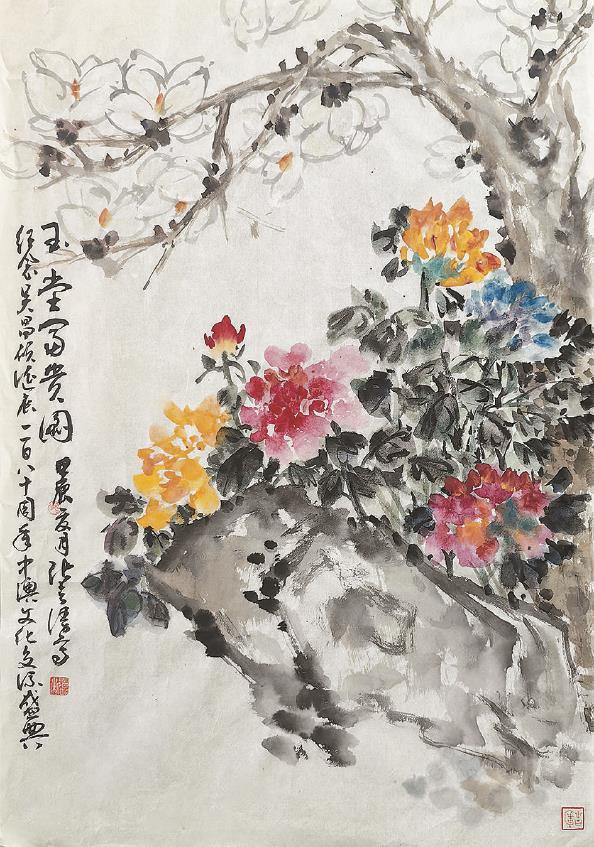 玉堂富贵图 甲辰夏月 写
纪念吴昌硕诞辰一百八十周年中澳文化交流盛典